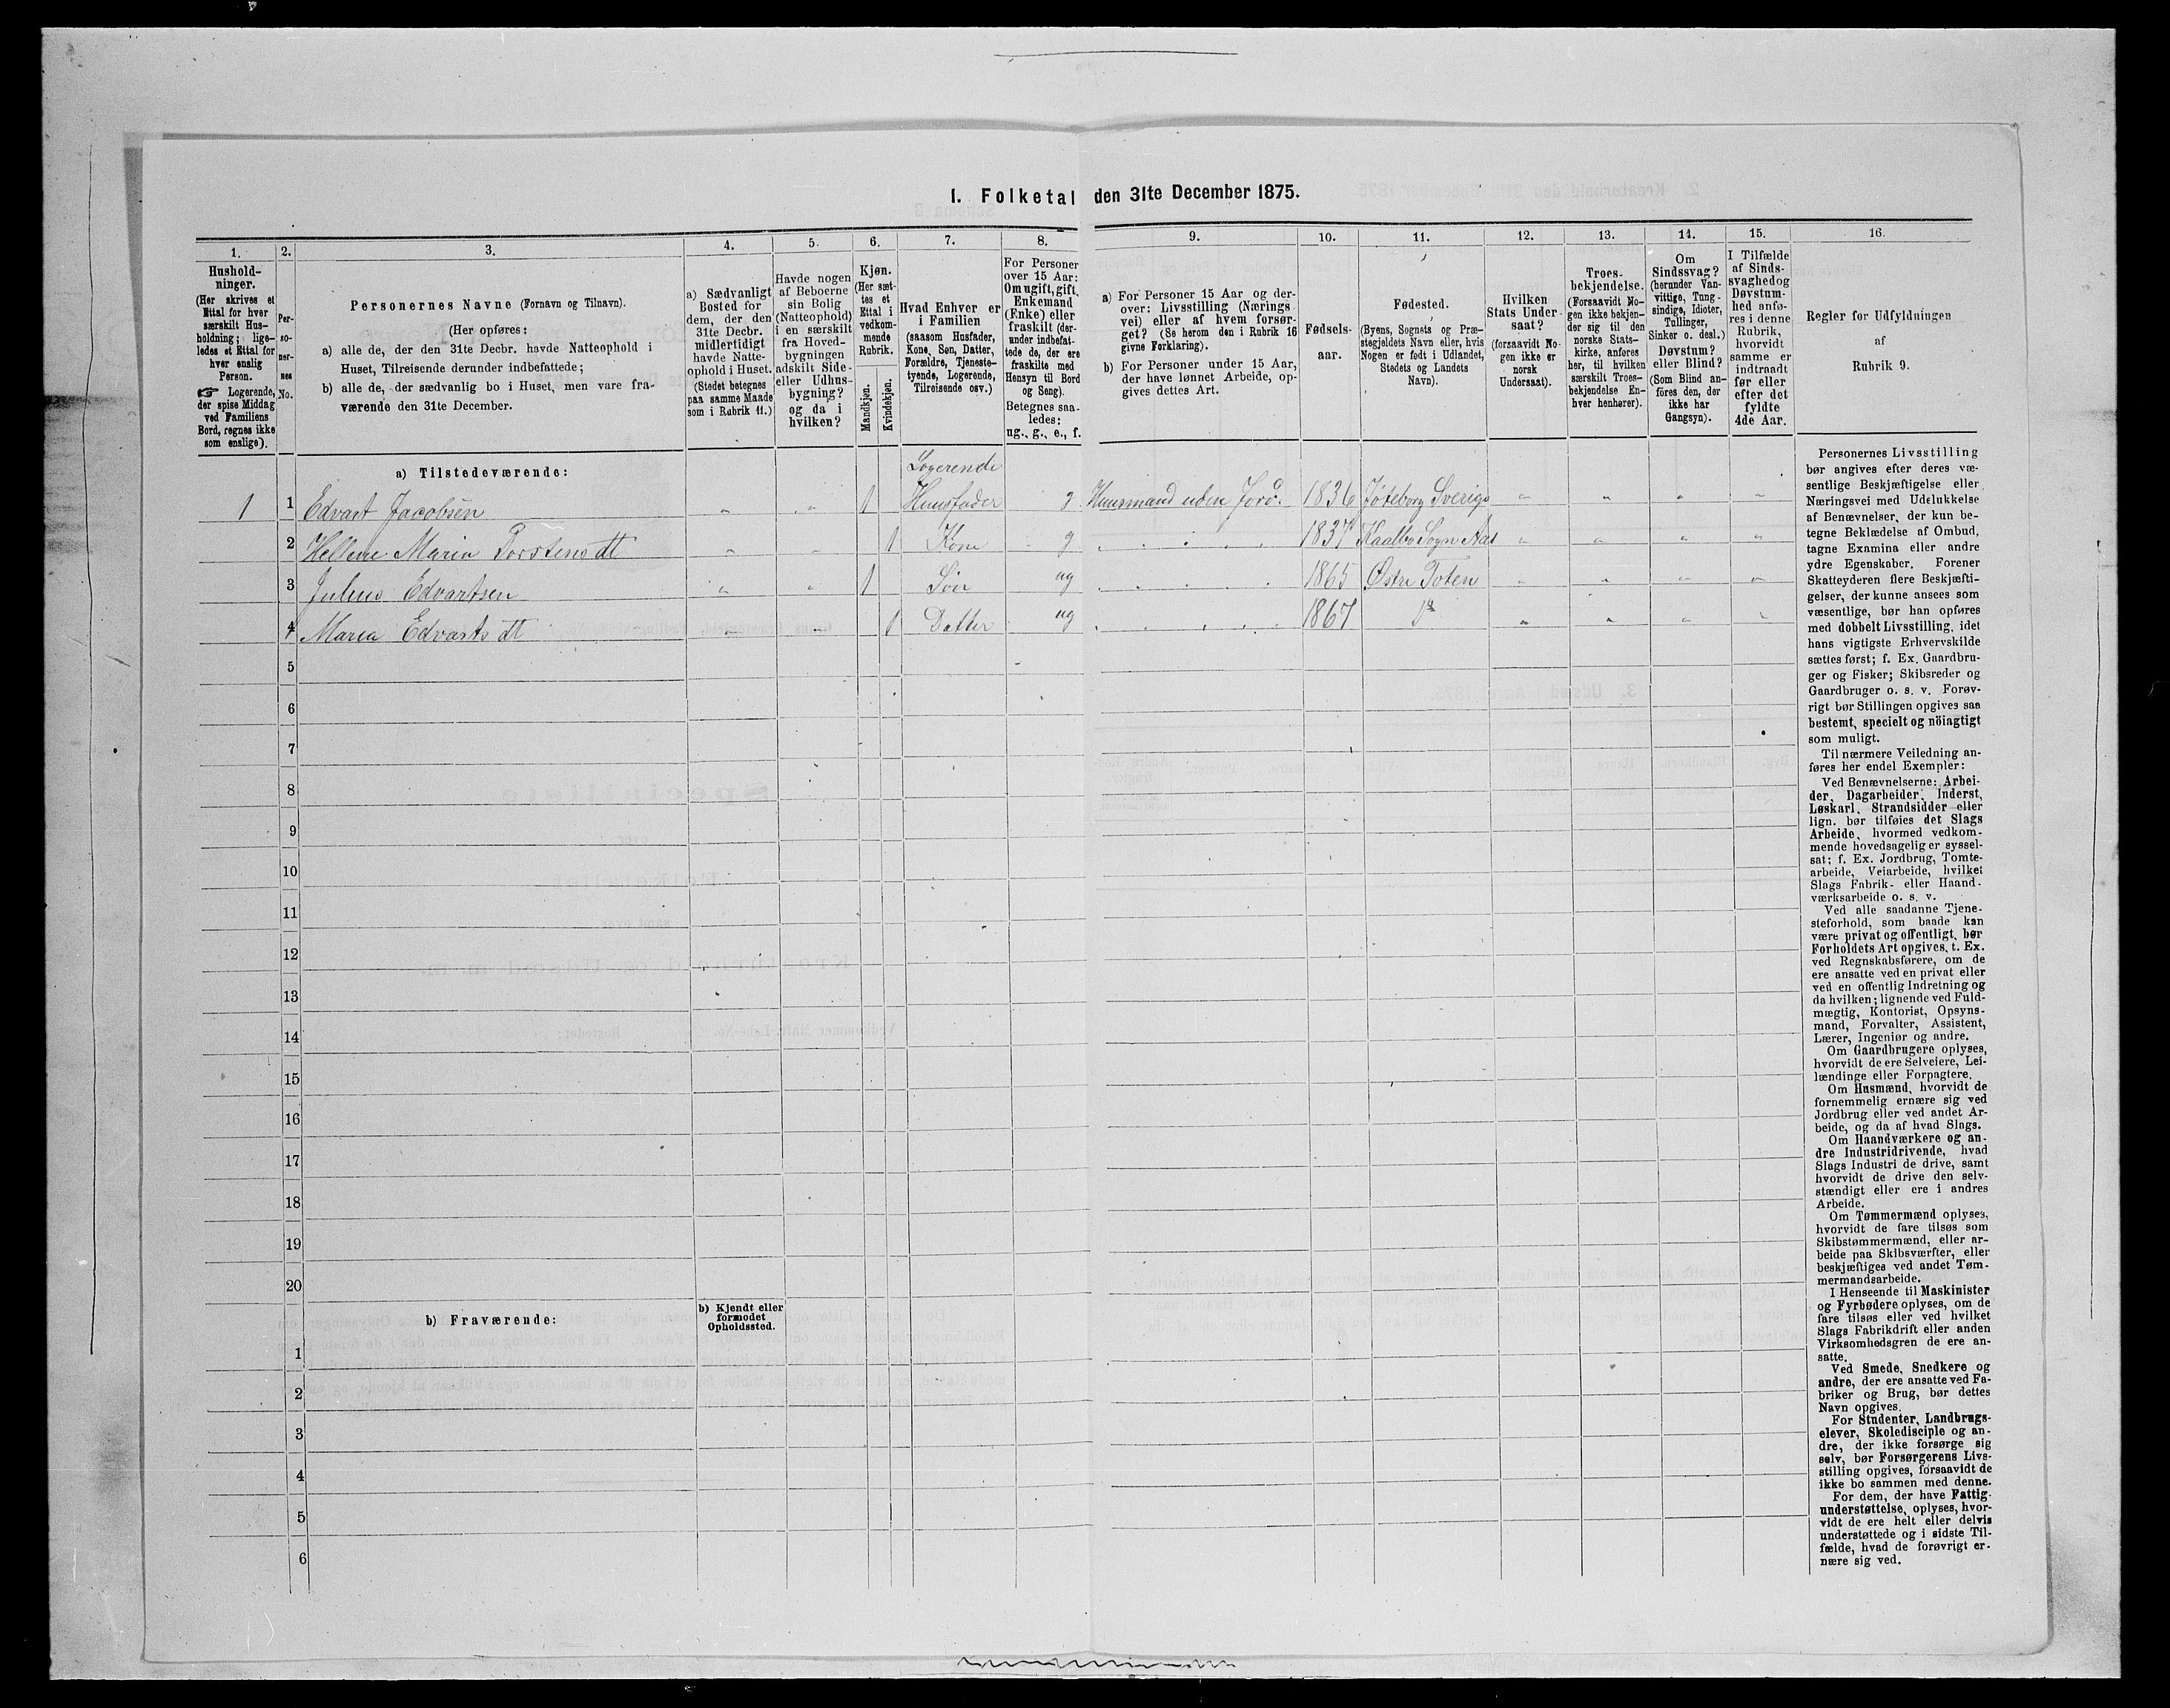 I. Folketal den 31te December 1875.
1. 2. 3. 4. 5. 6. 7. 8. 9. 10. 11. 12. 13. 14. 15. 16.
Hushold-
ninger.
(Her skrives et
Ettal for hver
særskilt Hus-
holdning; lige-
ledes et Ettal for
hver enslig
Person.
☞ Logerende,
der spise Middag
ved Familiens
Bord, regnes ikke
som enslige).
Per-
so-
ner-
nes
No.
Personernes Navne (Fornavn og Tilnavn).
(Her opføres:
a) alle de, der den 31te Decbr. havde Natteophold i
Huset, Tilreisende derunder indbefattede;
b) alle de, der sædvanlig bo i Huset, men vare fra-
værende den 31te December.
a) Sædvanligt
Bosted for
dem, der den
31te Decbr.
midlertidigt
havde Natte-
ophold i Huset.
(Stedet betegnes
paa samme Maade
som i Rubrik 11.)
Havde nogen
af Beboerne
sin Bolig
(Natteophold)
i en særskilt
fra Hoved-
bygningen
adskilt Side-
eller Udhus-
bygning?
og da i
hvilken?
Kjøn.
(Her sæt-
tes et
Ettal i
vedkom-
mende
Rubrik.
Mandkjøn.
Kvindekjøn.
Hvad Enhver er
i Familien
(saasom Husfader,
Kone, Søn, Datter,
Forældre, Tjeneste-
tyende, Logerende,
Tilreisende osv.)
For Personer
over 15 Aar:
Om ugift, gift,
Enkemand
(Enke) eller
fraskilt (der-
under indbefat-
tede de, der ere
fraskilte med
Hensyn til Bord
og Seng).
Betegnes saa-
ledes:
ug., g., e., f.
a) For Personer 15 Aar og der-
over: Livsstilling (Nærings
vei) eller af hvem forsør-
get? (Se herom den i Rubrik 16
givne Forklaring).
b) For Personer under 15 Aar,
der have lønnet Arbeide, op-
gives dettes Art.
Fødsels-
aar.
Fødested.
(Byens, Sognets og Præ-
stegjeldets Navn eller, hvis
Nogen er født i Udlandet,
Stedets og Landets
Navn).
Hvilken
Stats Under-
saat?
(forsaavidt No-
gen ikke er
norsk
Undersaat).
Troes-
bekjendelse.
(Forsaavidt No-
gen ikke bekjen-
der sig til den
norske Stats-
kirke, anføres
her, til hvilken
særskilt Troes-
bekjendelse En-
hver henhører).
Om
Sindssvag?
(herunder Van-
vittige, Tung-
sindige, Idioter,
Tullinger,
Sinker o. desl.)
Døvstum?
eller Blind?
(Som Blind an-
føres den, der
ikke har
Gangsyn).
I Tilfælde
af Sinds-
svaghed og
Døvstum-
hed anfø-
res i denne
Rubrik,
hvorvidt
samme er
indtraadt
før eller
efter det
fyldte
4de Aar.
Regler for Udfyldningen
af
Rubrik 9.
a) Tilstedeværende:
Logerende
1 1 Edvart Jacobsen „ „ 1 Huusfader g Huusmand uden Jord. 1836 Jøteborg Sverige „ „ „ „
2 Hellene Maria Torstensdt „ „ 1 Kone g 1837 Kaalbo Sogn Aas „ „ „ „
3 Julius Edvartsen „ „ 1 Søn ug 1865 Østre Toten „ „ „ „
4 Maria Edvartsdt „ „ 1 Datter ug 1867 „ „ „ „
5
6
7
8
9
10
11
12
13
14
15
16
17
18
19
20
b) Fraværende:
b) Kjendt eller
formodet
Opholdssted.
1
2
3
4
5
6
Personernes Livsstilling
bør angives efter deres væ-
sentlige Beskjæftigelse eller
Næringsvei med Udelukkelse
af Benævnelser, der kun be-
tegne Beklædelse af Ombud,
tagne Examina eller andre
ydre Egenskaber. Forener
Skatteyderen flere Beskjæfti-
gelser, der kunne ansees som
væsentlige, bør han opføres
med dobbelt Livsstilling, idet
hans vigtigste Erhvervskilde
sættes først; f. Ex. Gaardbru-
ger og Fisker; Skibsreder og
Gaardbruger o. s. v. Forøv-
rigt bør Stillingen opgives saa
bestemt, specielt og nöiagtigt
som muligt.
Til nærmere Veiledning an-
føres her endel Exempler:
Ved Benævnelserne: Arbei-
der, Dagarbeider, Inderst,
Løskarl, Strandsidder eller
lign. bør tilføies det Slags
Arbeide, hvormed vedkom-
mende hovedsagelig er syssel-
sat; f. Ex. Jordbrug, Tomte-
arbeide, Veiarbeide, hvilket
Slags Fabrik- eller Haand-
værksarbeide o. s. v.
Ved alle saadanne Tjene-
steforhold, som baade kan
være privat og offentligt, bør
Forholdets Art opgives, t. Ex.
ved Regnskabsførere, om de
ere ansatte ved en privat eller
ved en offentlig Indretning og
da hvilken; lignende ved Fuld-
mægtig, Kontorist, Opsyns-
mand, Forvalter, Assistent,
Lærer, Ingeniør og andre.
Om Gaardbrugere oplyses,
hvorvidt de ere Selveiere, Lei-
lændinge eller Forpagtere.
Om Husmænd, hvorvidt de
fornemmelig ernære sig ved
Jordbrug eller ved andet Ar-
beide, og da af hvad Slags.
Om Haandværkere og an-
dre Industridrivende, hvad
Slags Industri de drive, samt
hvorvidt de drive den selv-
stændigt eller ere i andres
Arbeide.
Om Tømmermænd oplyses,
hvorvidt de fare tilsøs som
Skibstømmermænd, eller ar-
beide paa Skibsværfter, eller
beskjæftiges ved andet Tøm-
mermandsarbeide.
I Henseende til Maskinister
og Fyrbødere oplyses, om de
fare tilsøs eller ved hvilket
Slags Fabrikdrift eller anden
Virksomhedsgren de ere an-
satte.
Ved Smede, Snedkere og
andre, der ere ansatte ved Fa-
briker og Brug, bør dettes
Navn opgives.
For Studenter, Landbrugs-
elever, Skoledisciple og an-
dre, der ikke forsørge sig
selv, bør Forsørgerens Livs-
stilling opgives, forsaavidt de
ikke bo sammen med denne.
For dem, der have Fattig-
understøttelse, oplyses, hvor-
vidt de ere helt eller delvis
understøttede og i sidste Til-
fælde, hvad de forøvrigt er-
nære sig ved.